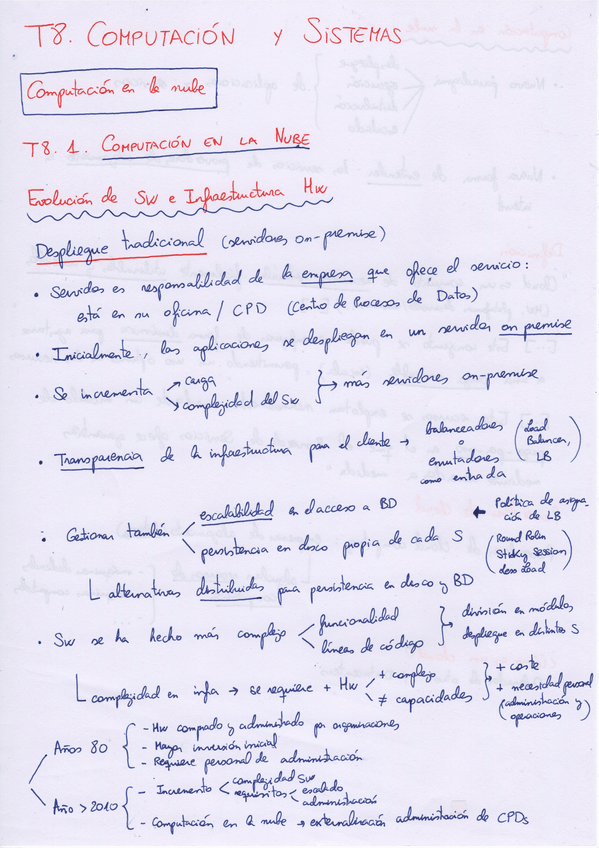 T8. COMPUTACIÓN Y SISTEMAS
Computación en la nube
T8. 1. COMPUTACIÓN EN LA NUBE
Evolución de SW e Infraestructura HW
Despliegue tradicional (servidores on-premise)
• Servidor es responsabilidad de la empresa que ofrece el servicio:
está en su oficina / CPD (Centro de Procesos de Datos)
• Inicialmente, las aplicaciones se despliegan en un servidor on premise
• Se incrementa → carga
→ complejidad del SW
→ más servidores on-premise
• Transparencia de la infraestructura para el cliente → balanceadores
o
enrutadores
como entrada
(Load Balancer, LB)
• Gestionar también
escalabilidad en el acceso a BD
persistencia en disco propia de cada S
← Política de asignación de LB
(Round Robin
Sticky Session
Less Load)
alternativas distribuidas para persistencia en disco y BD
• SW se ha hecho más complejo
funcionalidad
líneas de código
→ división en módulos
despliegue en distintos S
complejidad en infra → se requiere + HW
+ complejo
≠ capacidades
+ coste
+ necesidad personal
(administración y operaciones)
Años 80
- HW comprado y administrado por organizaciones
- Mayor inversión inicial
- Requiere personal de administración
Año > 2010
- Incremento
complejidad SW
requisitos
escalado
administración
- Computación en la nube → externalización administración de CPDs